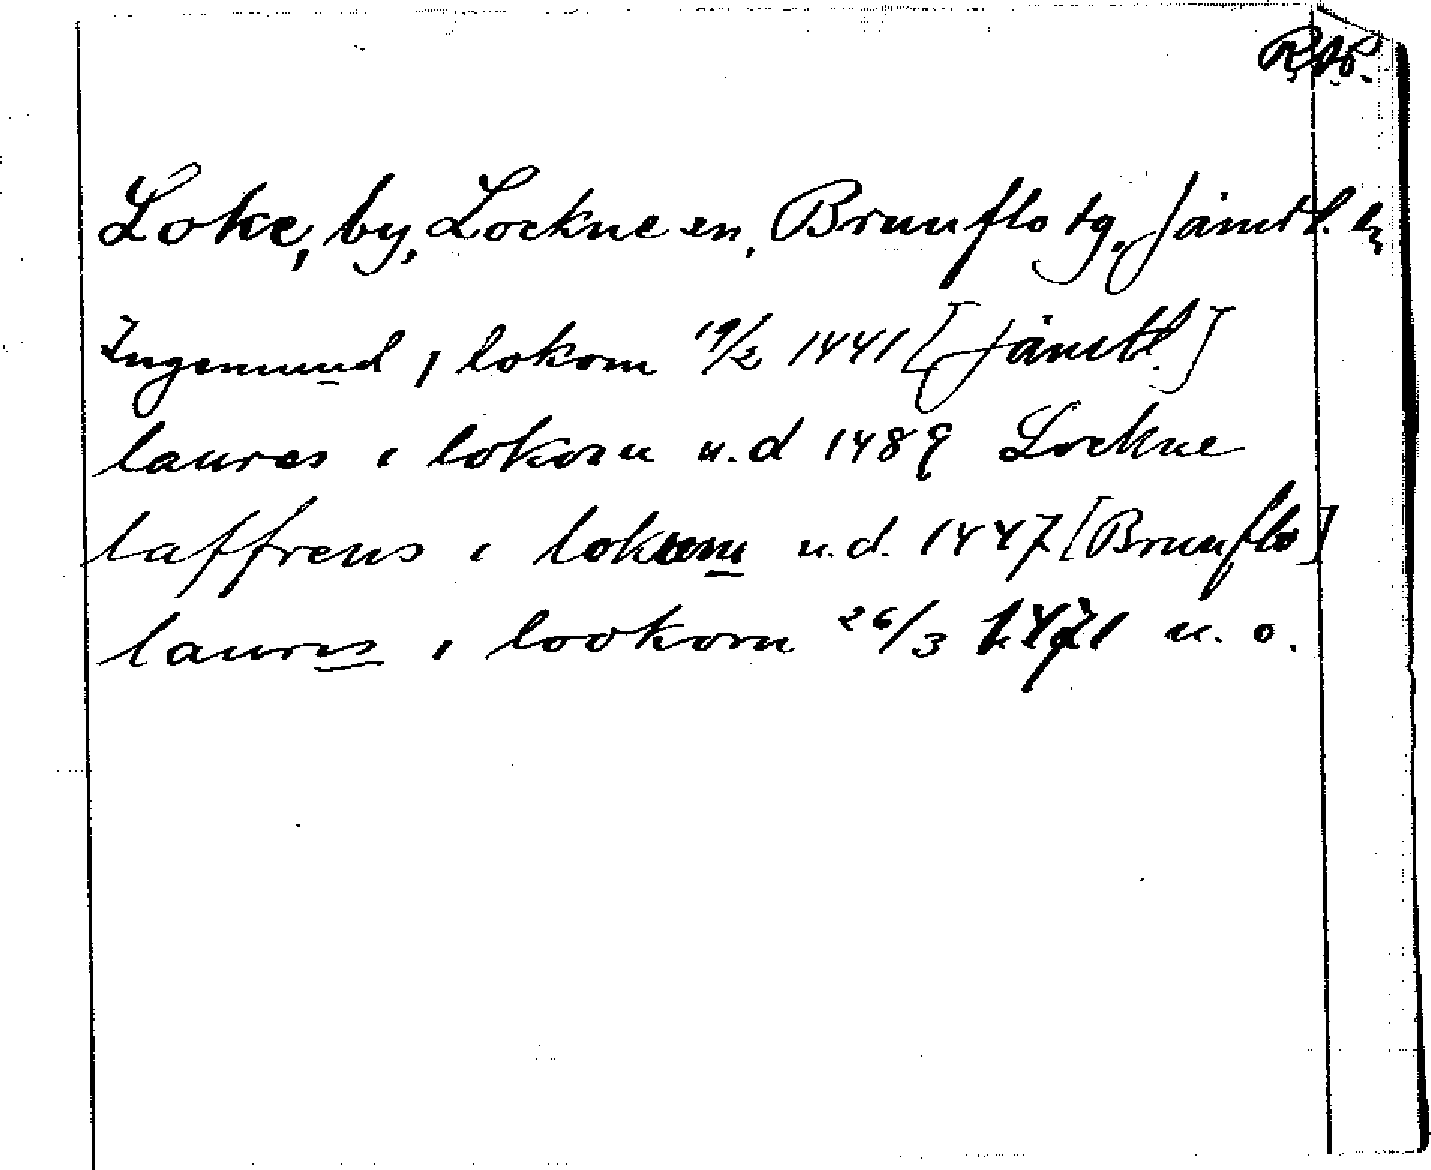 RAP.
Loke, by, Lockne sn, Brunflo tg, Jämtl. l.
Ingemund i lokom 19/2 1441 [Jämtl.]
laures i lokom u.d 1489 Lockne
laffrens i lokom u.d. 1447 [Brunflo]
laures i lookom 26/3 1471 u. o.